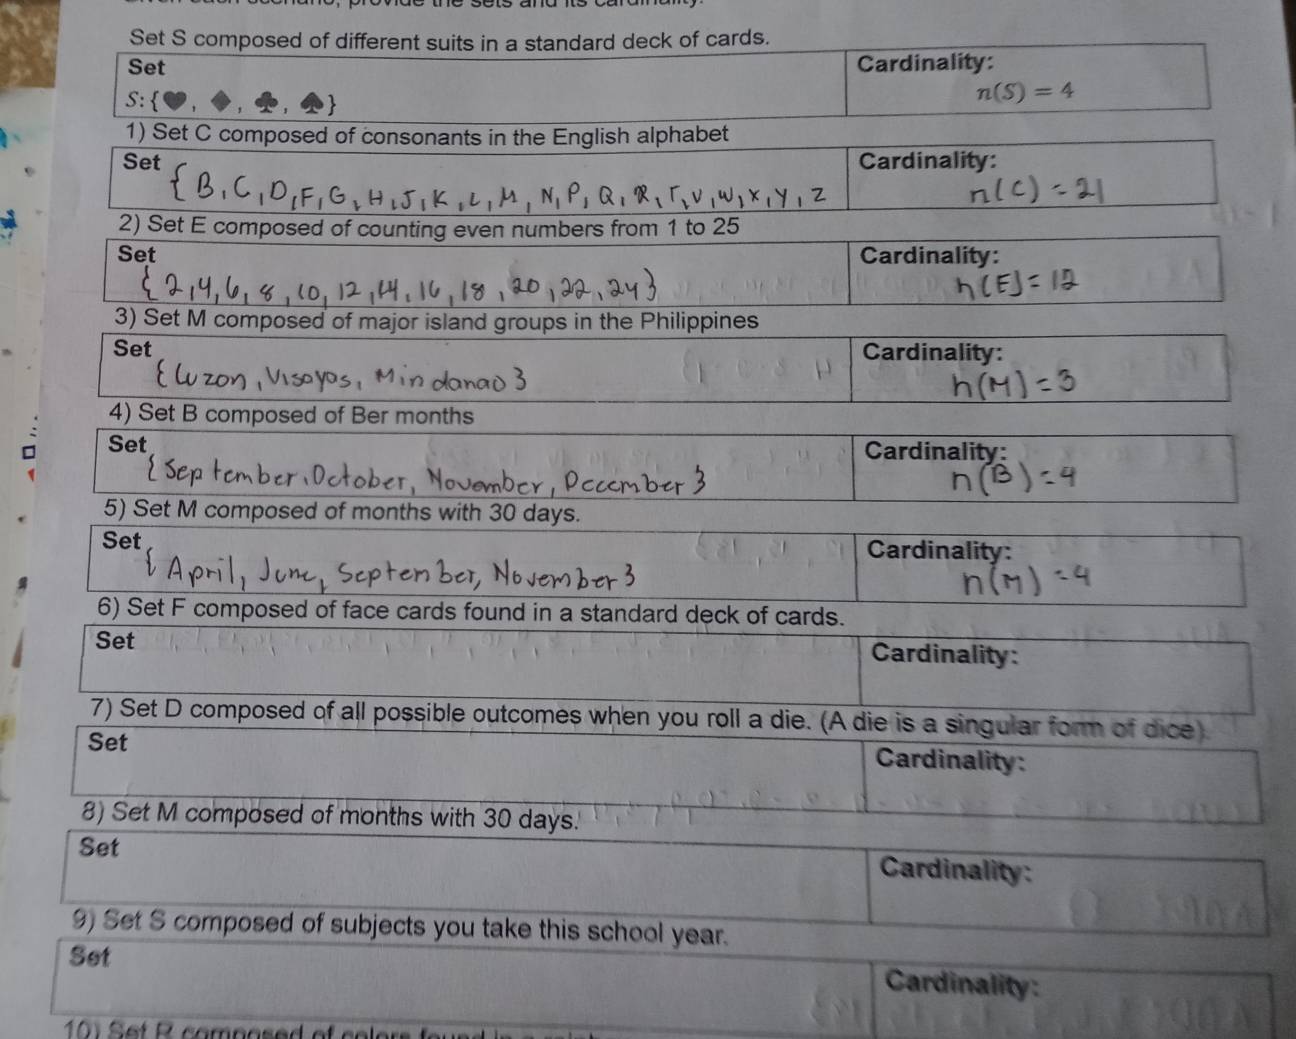 Set S composed of different suits in a standard deck of cards.
Set Cardinality:
S:{♥, ♦, ♣, ♠} n(S) = 4
1) Set C composed of consonants in the English alphabet
Set Cardinality:
{B, C, D, F, G, H, J, K, L, M, N, P, Q, R, T, V, W, X, Y, Z n(C) = 21
2) Set E composed of counting even numbers from 1 to 25
Set Cardinality:
{2,4,6,8,10,12,14,16,18,20,22,24} n(E)=12
3) Set M composed of major island groups in the Philippines
Set Cardinality:
{Luzon, Visayas, Mindanao} n(M)=3
4) Set B composed of Ber months
Set Cardinality:
{September, October, November, December} n(B)=4
5) Set M composed of months with 30 days.
Set Cardinality:
{April, June, September, November} n(M)=4
6) Set F composed of face cards found in a standard deck of cards.
Set Cardinality:
7) Set D composed of all possible outcomes when you roll a die. (A die is a singular form of dice)
Set Cardinality:
8) Set M composed of months with 30 days.
Set Cardinality:
9) Set S composed of subjects you take this school year.
Set Cardinality:
10) Set R composed of colors found in a